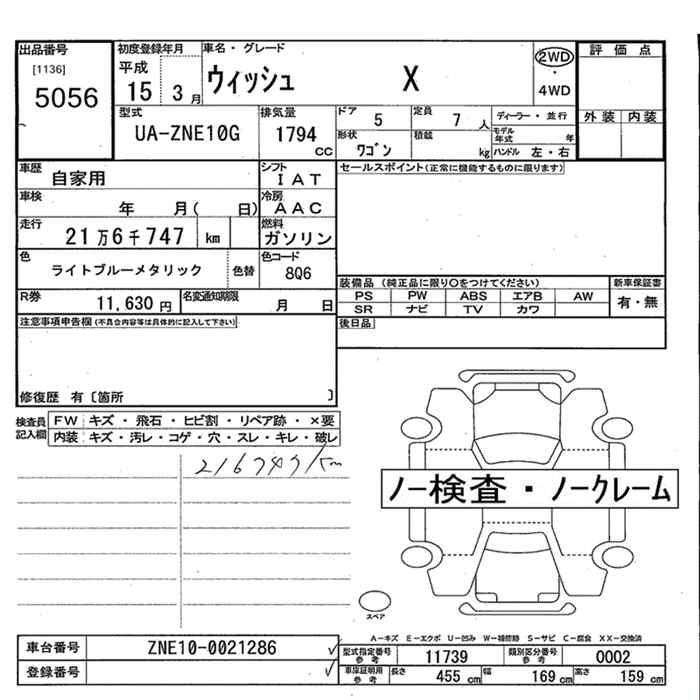 出品番号
[1136]
5056
初度登録年月
平成
15 3 月
車名・グレード
ウィッシュ X
2WD
・
4WD
評価点
外装 内装
型式
UA-ZNE10G
排気量
1794
CC
ドア
5
定員
7 人
ディーラー・並行
モデル年式 年
形状
ワゴン
積載
kg
ハンドル 左・右
車歴
自家用
シフト
IAT
セールスポイント(正常に機能するものに限ります)
車検
年 月( 日)
冷房
AAC
走行
21万6千747 km
燃料
ガソリン
色
ライトブルーメタリック
色替
色コード
8Q6
装備品 (純正品に限り○をつけてください)
新車保証書
PS PW ABS エアB AW
有・無
SR ナビ TV カワ
R券
11,630 円
名変通知期限
月 日
後日品
注意事項申告欄(不具合内容等は具体的に記入して下さい)
修復歴 有〔箇所 〕
検査員記入欄
FW キズ・飛石・ヒビ割・リペア跡・×要
内装 キズ・汚レ・コゲ・穴・スレ・キレ・破レ
216747km
ノー検査・ノークレーム
スペア
A-キズ E-エクボ U-凹み W-補修跡 S-サビ C-腐食 XX-交換済
車台番号
ZNE10-0021286
登録番号
型式指定番号参考
11739
類別区分番号参考
0002
車庫証明用参考
長さ 455 cm 幅 169 cm 高さ 159 cm